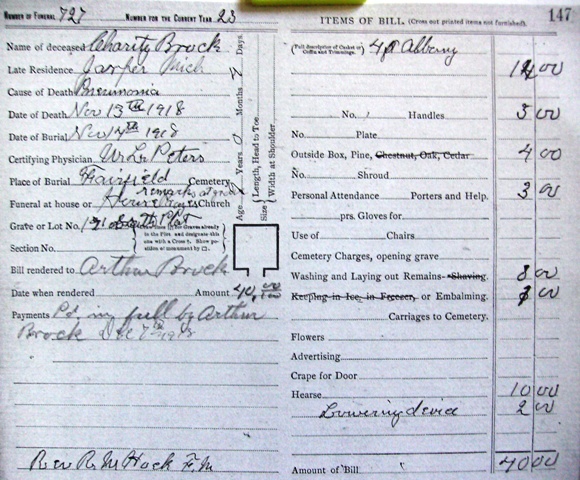 NUMBER OF FUNERAL 727 NUMBER FOR THE CURRENT YEAR 23
Name of deceased Charity Brock
Late Residence Jasper Mich
Cause of Death Pneumonia
Date of Death Nov 13th 1918
Date of Burial Nov 14th 1918
Certifying Physician Peters
Place of Burial Fairfield Cemetery
remarks at grave
Funeral at house or Church
Grave or Lot No. South
Section No.
Bill rendered to Arthur Brock
Date when rendered Amount 40.00
Payments Pd in full by Arthur
Brock Dec 1918
Rev R. M. Hock F. M.
Age Years Months Days
Size Length, Head to Toe
Width at Shoulder
ITEMS OF BILL. (Cross out printed items not furnished). 147
(Full description of Casket or Coffin and Trimmings.)
00
No. Handles 3 00
No. Plate
Outside Box, Pine, Chestnut, Oak, Cedar 4 00
No. Shroud
Personal Attendance Porters and Help. 3 00
prs. Gloves for
Use of Chairs
Cemetery Charges, opening grave
Washing and Laying out Remains Shaving. 8 00
Keeping in Ice, in Freezer, or Embalming. 00
Carriages to Cemetery.
Flowers
Advertising
Crape for Door
Hearse 10 00
Lowering device 2 00
Amount of Bill 40 00